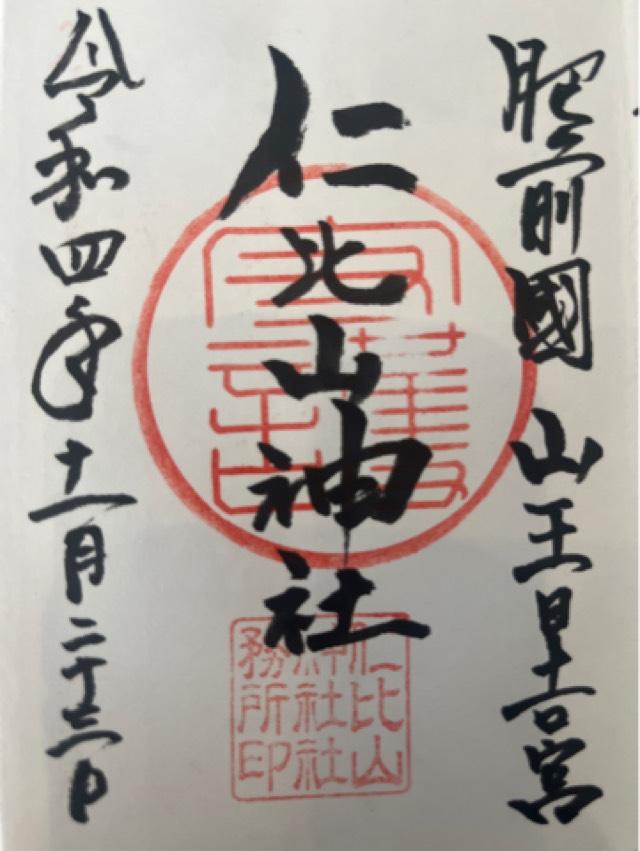 肥前國 山王日吉宮
仁比山神社
令和四年十一月二十三日
仁比山
神社社
務所印